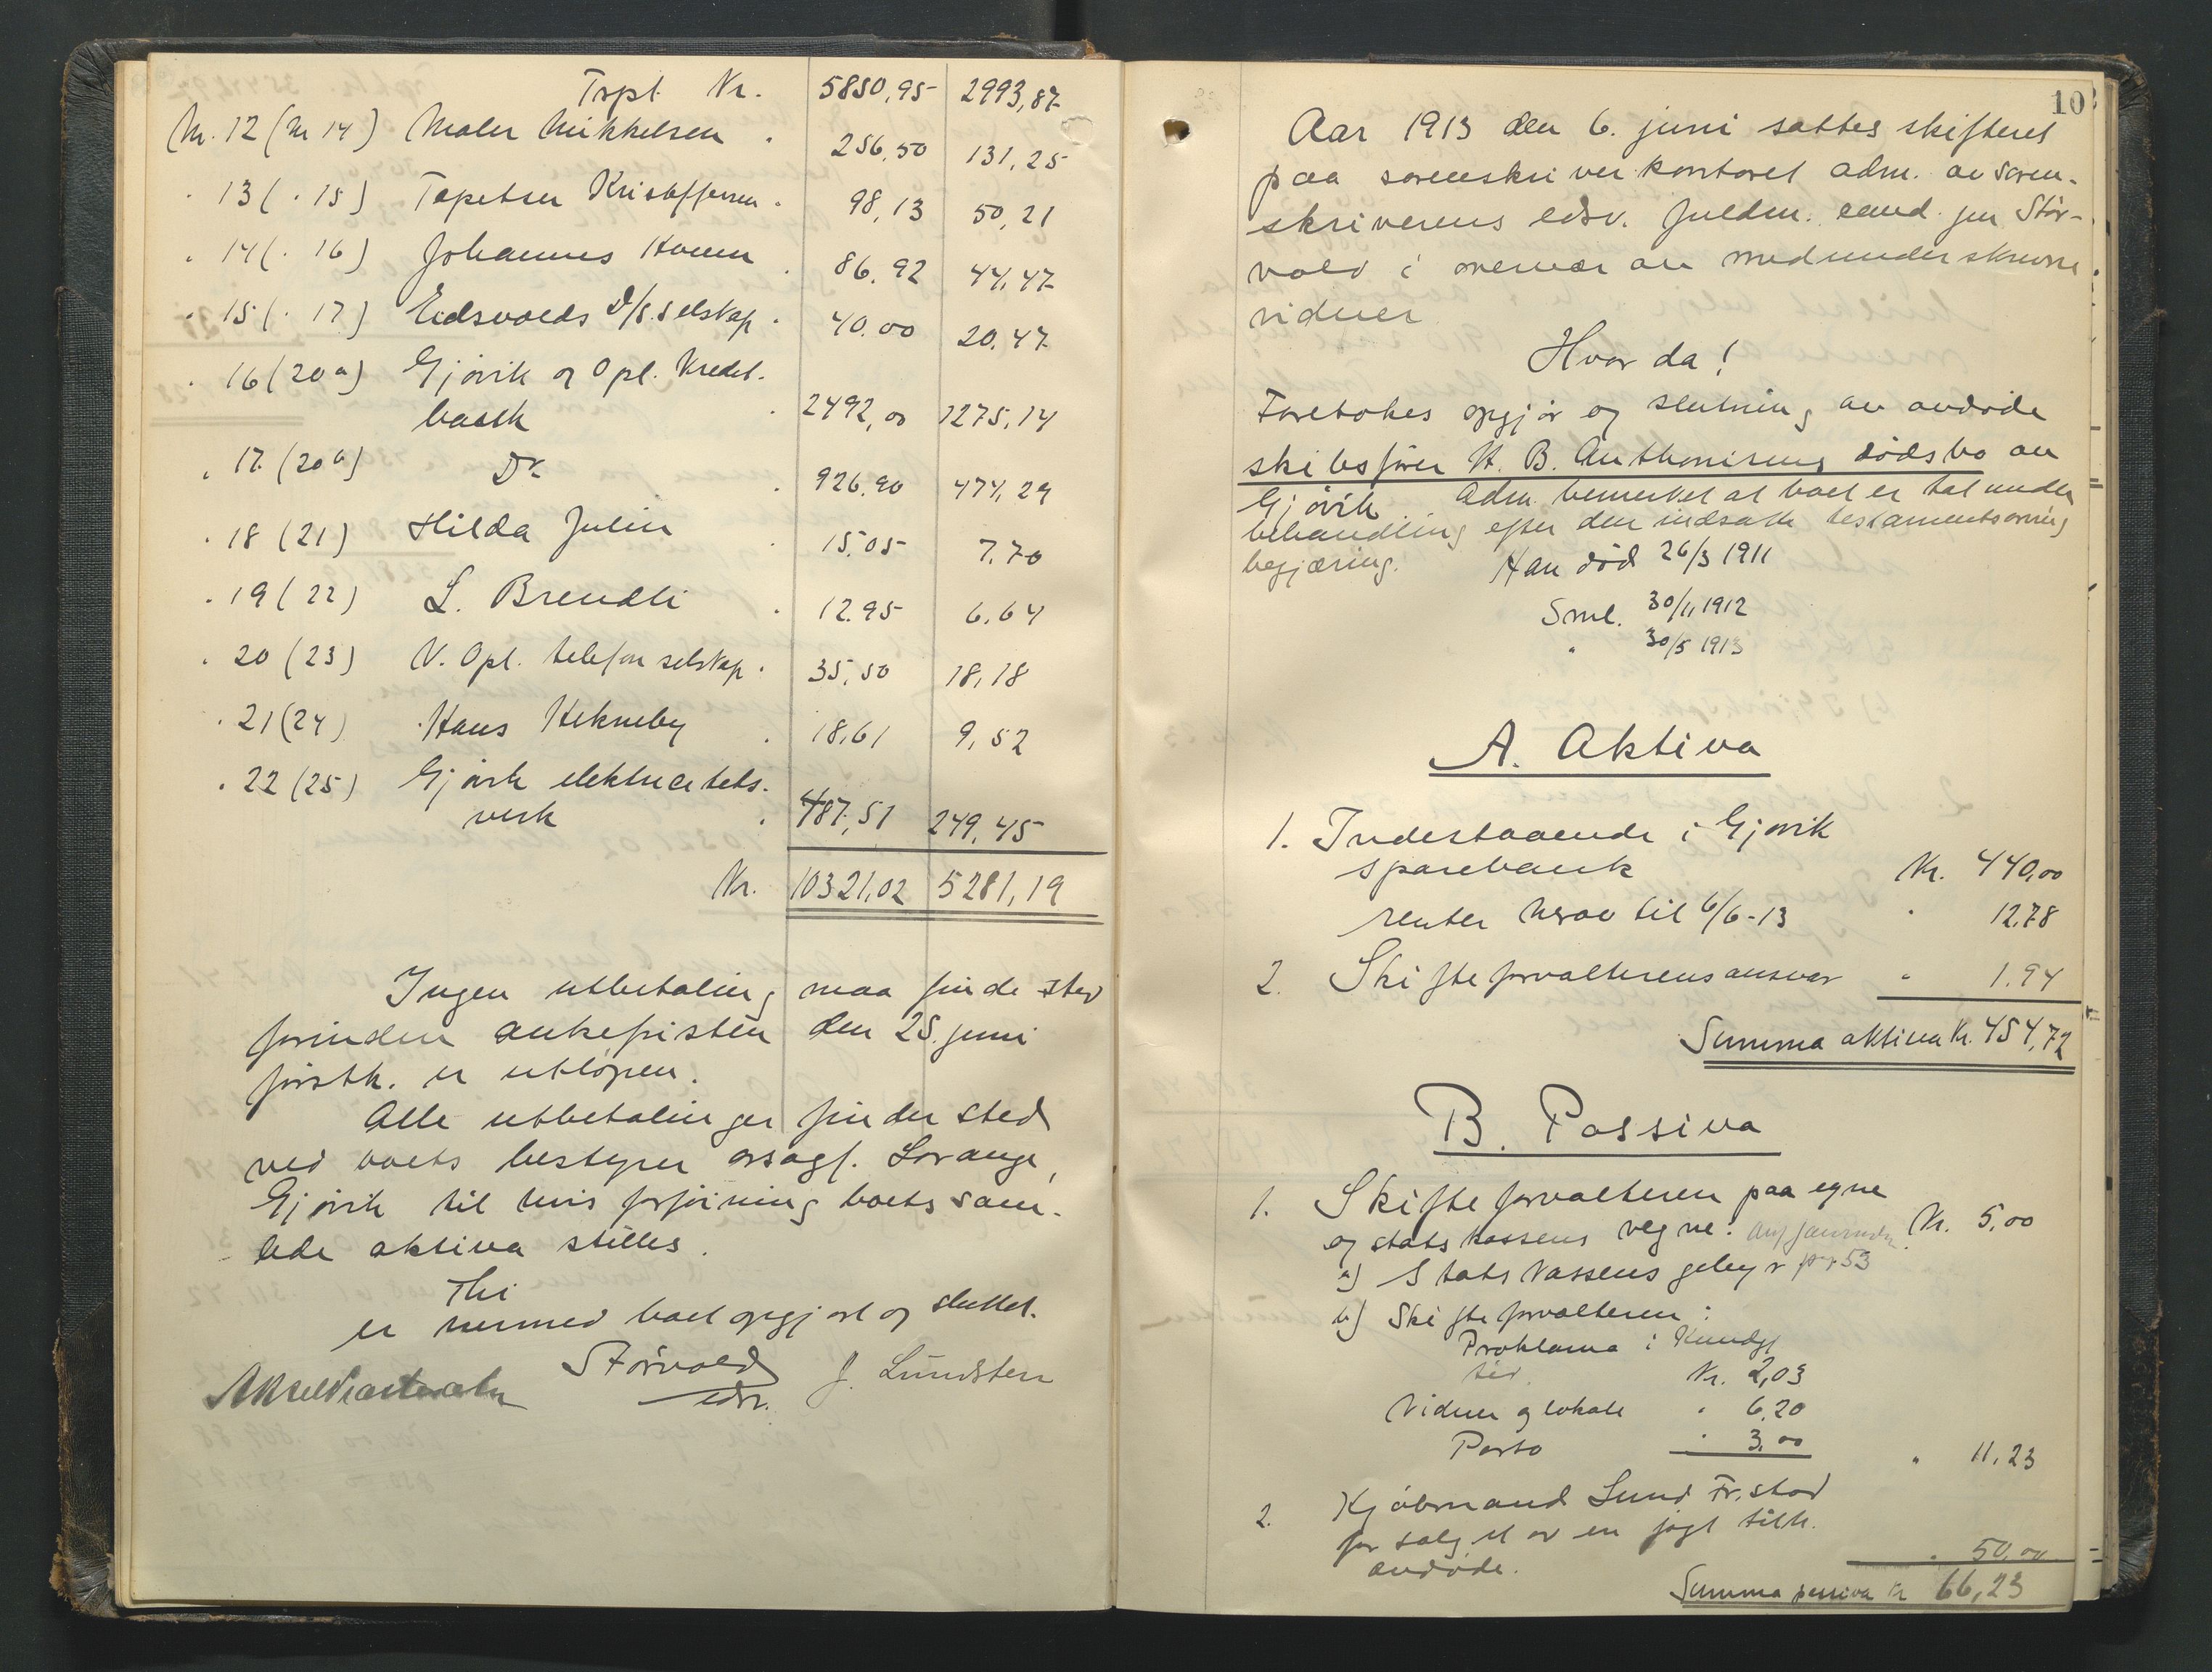 Trpt Kr. 5850,95 2993,87
Nr. 12 (Nr 14) Maler Mikkelsen . 256,50 131,25
" 13 ( " 15) Tapetser Kristoffersen . 98,13 50,21
" 14 ( " 16) Johannes . 86,92 44,47
" 15 ( " 17) Eidsvolds D/S.selskap . 40,00 20,47
" 16 (20a) Gjøvik og Opl. Kredit-
bank . 2492,00 1275,14
" 17 (20b) Do . 926,90 474,29
" 18 (21) Hilda Julin . 15,05 7,70
" 19 (22) L. Brendli . 12,95 6,64
" 20 (23) V. Opl. telefonselskap . 35,50 18,18
" 21 (24) Hans Hekneby . 18,61 9,52
" 22 (25) Gjøvik elektricitets-
verk . 487,51 249,45
Kr. 10321,02 5281,19
Ingen utbetaling maa finde sted
forinden ankefristen den 25. juni
førstk. er utløpen.
Alle utbetalinger finder sted
ved boets bestyrer orsagf. Lorange,
Gjøvik til hvis forføining boets sam-
lede aktiva stilles.
Thi
er hermed boet opgjort og sluttet.
Størvold J. Lundsten
edsv.
10
Aar 1913 den 6. juni sattes skifteret
paa sorenskriverkontoret adm. av soren-
skriverens edsv. fuldm. cand. jur Stør-
vold i overvær av medunderskrevne
vidner
Hvor da!
Foretokes opgjør og slutning av avdøde
skibsfører H. B. Anthonisens dødsbo av
Gjøvik Adm. bemerket at boet er tat under
behandling efter den indsatte testamentsarving
begjæring. Han død 26/3 1911
Sml. 30/11 1912
" 30/5 1913
A. Aktiva
1. Indestaaende i Gjøvik
sparebank Kr. 440,00
renter herav til 6/6-13 " 12,78
2. Skifteforvalterens ansvar " 1,94
Summa aktiva Kr. 454,72
B. Passiva
1. Skifteforvalteren paa egne
og statskassens vegne: Kr. 5,00
a) Statskassens gebyr
b) Skifteforvalteren:
Proklama i Kundgj
tid. Kr. 2,03
Vidner og lokale " 6,20
Porto " 3,00 " 11,23
2. Kjøbmand Lund Fr.stad
for salget av en jagt tilh.
avdøde. " 50,00
Summa passiva Kr 66,23